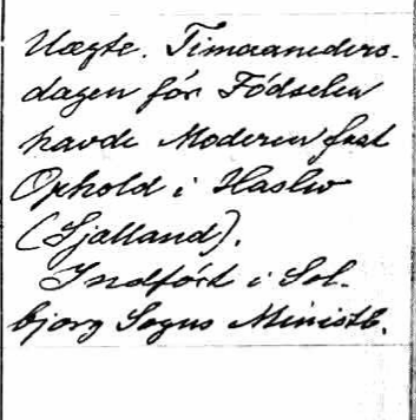 Uægte. Timaaneders-
dagen før Fødselen
havde Moderen fast
Ophold i Haslev
(Sjælland).
Indført i Sol-
bjerg Sogns Ministb.